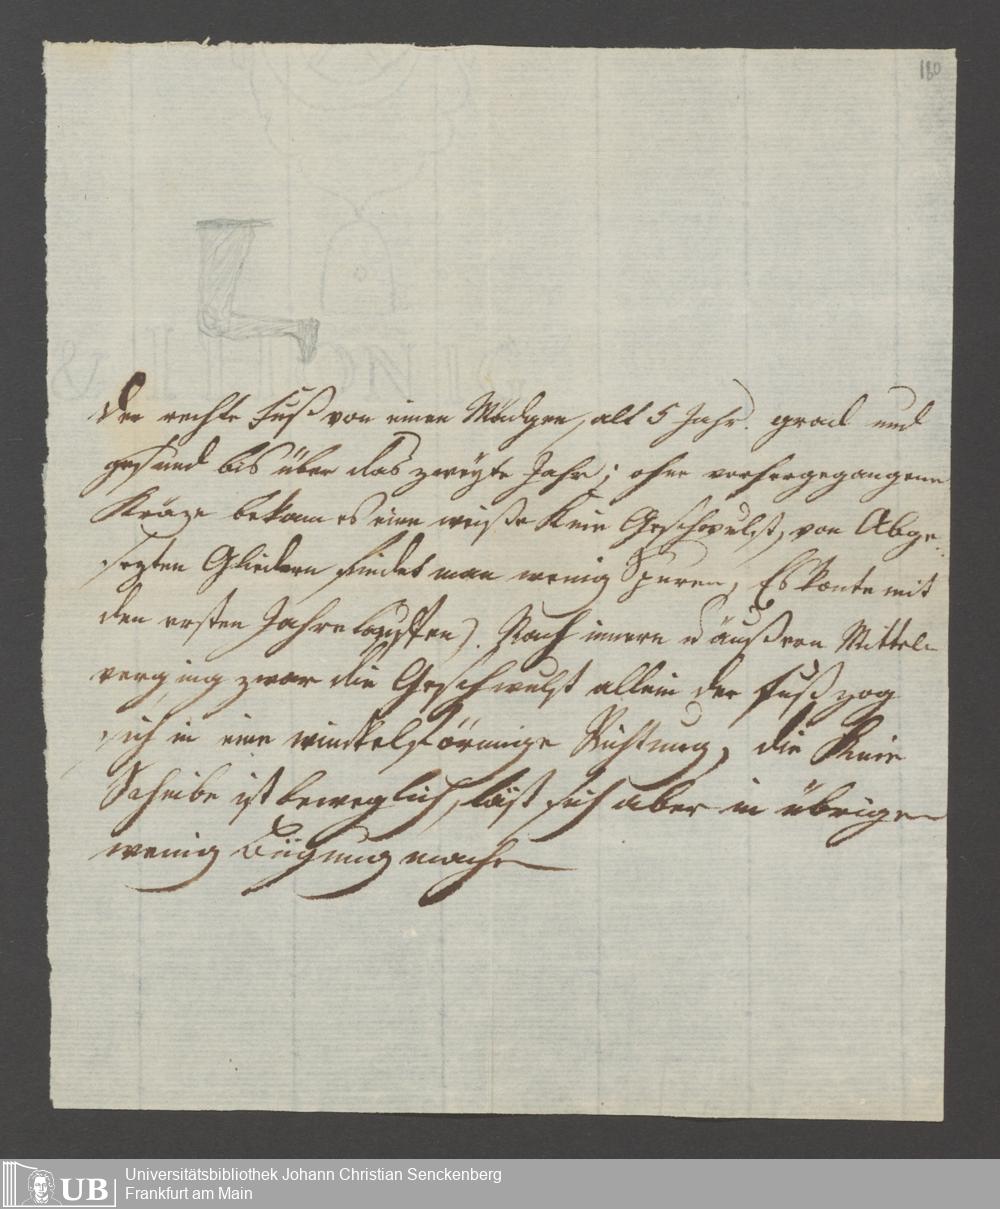 180
& I HONIG
Der rechte Fuß von einen Mädgen, alt 5 Jahr. grad und
gesund bis über das zweÿte Jahr; ohne vorhergegangene
Kräze bekam es eine weiße Knie Geschwulst, von Abge-
sezten Gliedern findet man wenig Spuren, Es konte mit
den ersten Jahre lauffen). Nach innern u äußren Mitteln
verging zwar die Geschwulst allein der Fuß zog
sich in eine winkelförmige Richtung, die Knie
Scheibe ist beweglich, läst sich aber in übrigen
wenig Biegung machen
UB
Universitätsbibliothek Johann Christian Senckenberg
Frankfurt am Main